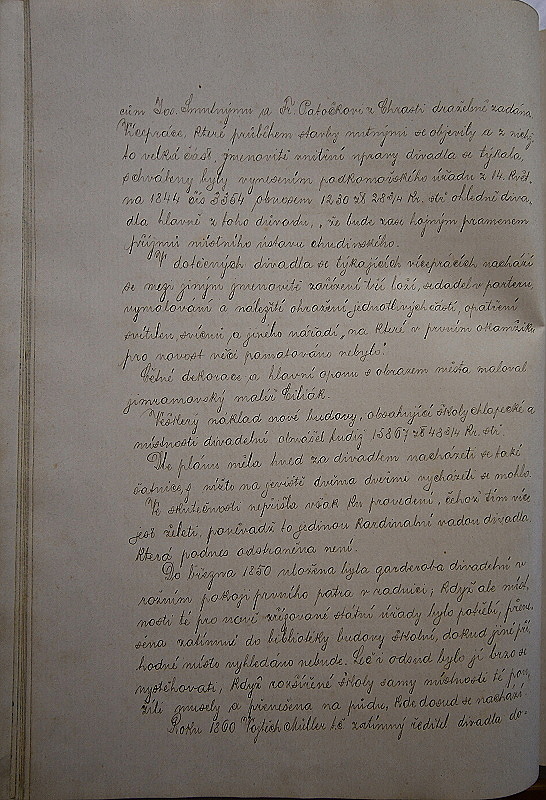 cům Jos. Smutnýmu a Fr. Patočkovi z Chrasti dražebně zadána.
Vícepráce, které průběhem stavby nutnými se objevily a z nichž
to velká část, jmenovitě vnitřní úpravy divadla se týkala,
schváleny byly vynesením podkomořského úřadu z 14. Květ.
na 1844 čís 3364 obnosem 1230 zl 28 3/4 Kr. stř. ohledně diva-
dla hlavně z toho důvodu, „že bude zase hojným pramenem
příjmů místního ústavu chudinského.
V dotčených divadla se týkajících vícepracích nachází
se mezi jinými jmenovitě zařízení tří loží, sedadel v parterru,
vymalování a náležité ohražení jednotlivých částí, opatření
světlem, svícni a jiného nářadí „na které v prvním okamžiku
pro novost věci pamatováno nebylo".
Četné dekorace a hlavní oponu s obrazem města maloval
jimramovský malíř Cihák.
Veškerý náklad nové budovy, obsahující školy chlapecké a
místnosti divadelní obnášel tudíž 15867 zl 48 3/4 Kr. stř.
Dle plánu měla hned za divadlem nacházeti se také
šatnice, z nížto na jeviště dvěma dveřmi vycházeti se mohlo.
Ve skutečnosti nepřišla však ku provedení, čehož tím více
jest želeti, poněvadž to jedinou kardinalní vadou divadla,
která podnes odstraněna není.
Do března 1850 uložena byla garderoba divadelní v
rožním pokoji prvního patra v radnici; když ale míst-
nosti té pro nově zřizované státní úřady bylo potřebí, přene-
sena zatímně do bibliotéky budovy školní, dokud jiné pří-
hodné místo vyhledáno nebude. Leč i odsud bylo jí brzo se
vystěhovati, když rozšířené školy samy místnosti té pou-
žíti musely a přenešena na půdu, kde dosud se nachází.
Roku 1860 Vojtěch Müller t.č. zatímný ředitel divadla do-